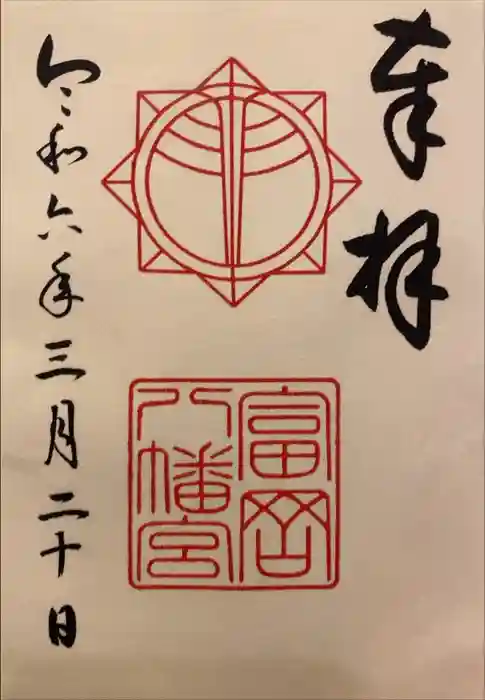 奉拝
富岡
八幡宮
令和六年三月二十日